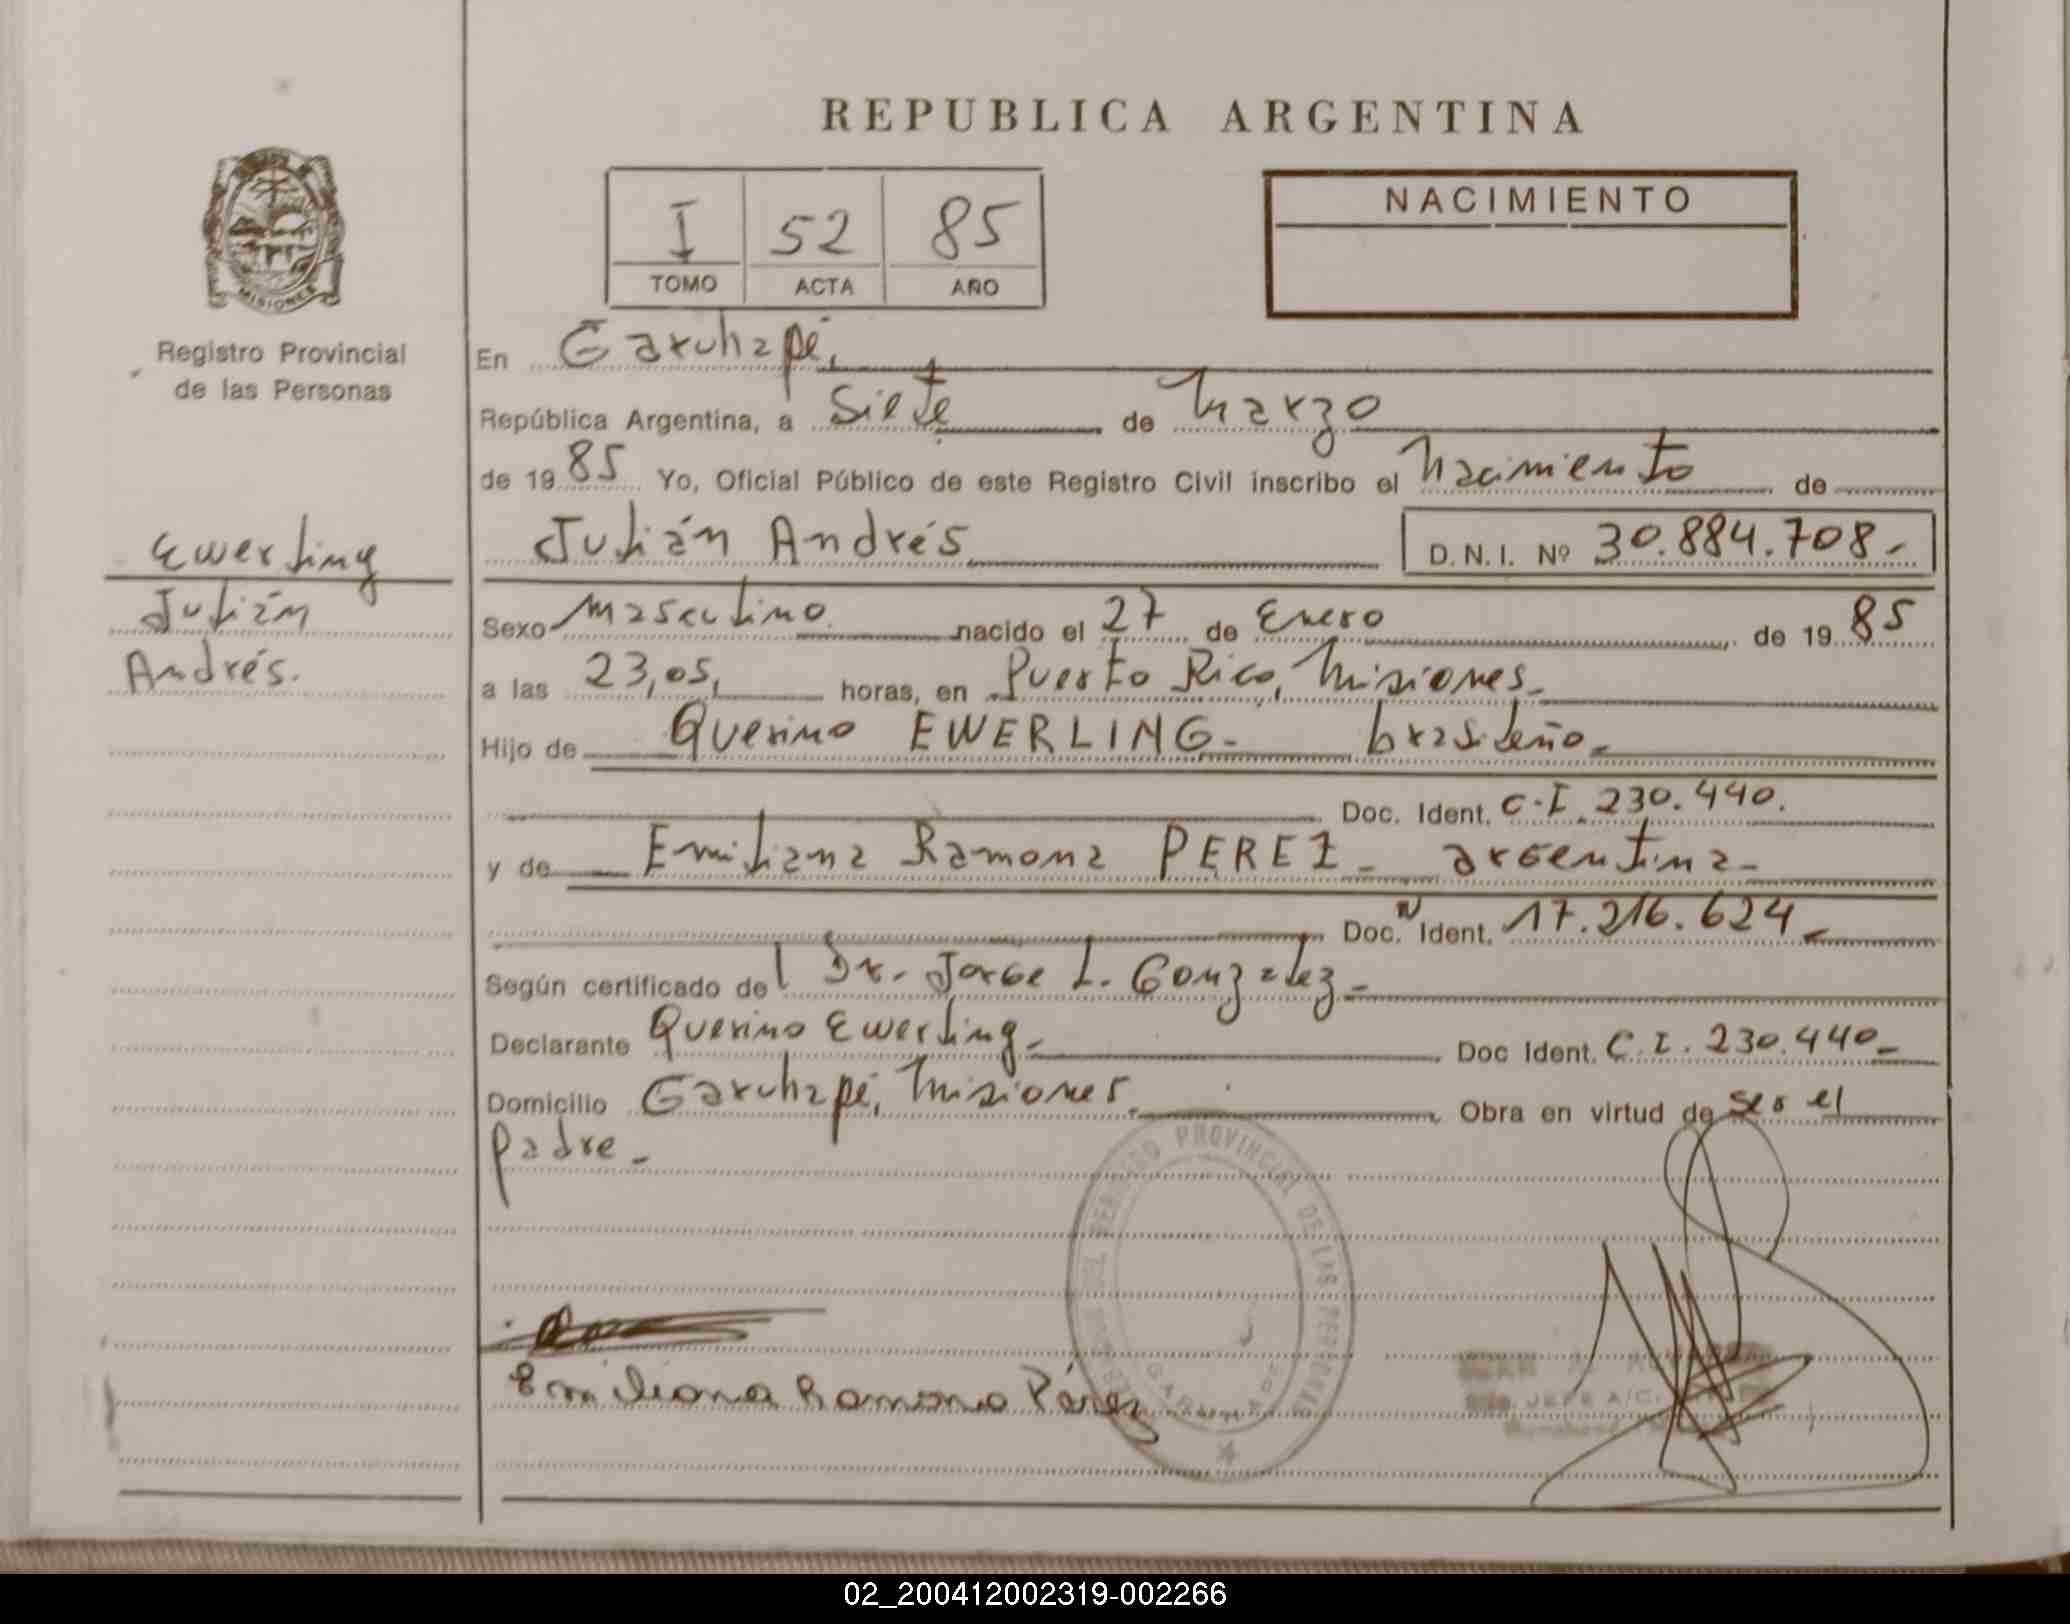 REPUBLICA ARGENTINA
I 52 85
TOMO ACTA AÑO
NACIMIENTO
MISIONES
Registro Provincial
de las Personas
Ewerling
Julián
Andrés.
En Garuhapé,
República Argentina, a Siete de Marzo
de 1985 Yo, Oficial Público de este Registro Civil inscribo el Nacimiento de
Julián Andrés D.N.I. Nº 30.884.708.-
Sexo Masculino nacido el 27 de Enero de 1985
a las 23,05, horas, en Puerto Rico, Misiones.-
Hijo de Querino EWERLING- brasileño.-
Doc. Ident. C.I. 230.440.
y de Emiliana Ramona PEREZ- argentina-
Doc. Ident. 17.216.624-
Según certificado de Dr. Jorge L. Gonzalez-
Declarante Querino Ewerling- Doc Ident. C.I. 230.440-
Domicilio Garuhapé, Misiones. Obra en virtud de ser el
padre-
PROVINCIAL DE LAS PERSONAS
Emiliana Ramona Pérez
JEFE A/C.
02_200412002319-002266